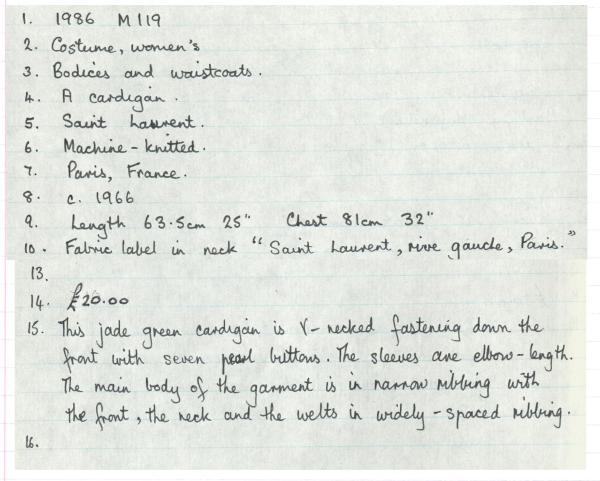 1. 1986 M119
2. Costume, women's
3. Bodices and waistcoats.
4. A cardigan.
5. Saint Laurent.
6. Machine-knitted.
7. Paris, France.
8. c. 1966
9. Length 63.5cm 25" Chest 81cm 32"
10. Fabric label in neck "Saint Laurent, rive gauche, Paris."
13.
14. £20.00
15. This jade green cardigan is V-necked fastening down the
front with seven pearl buttons. The sleeves are elbow-length.
The main body of the garment is in narrow ribbing with
the front, the neck and the welts in widely-spaced ribbing.
16.